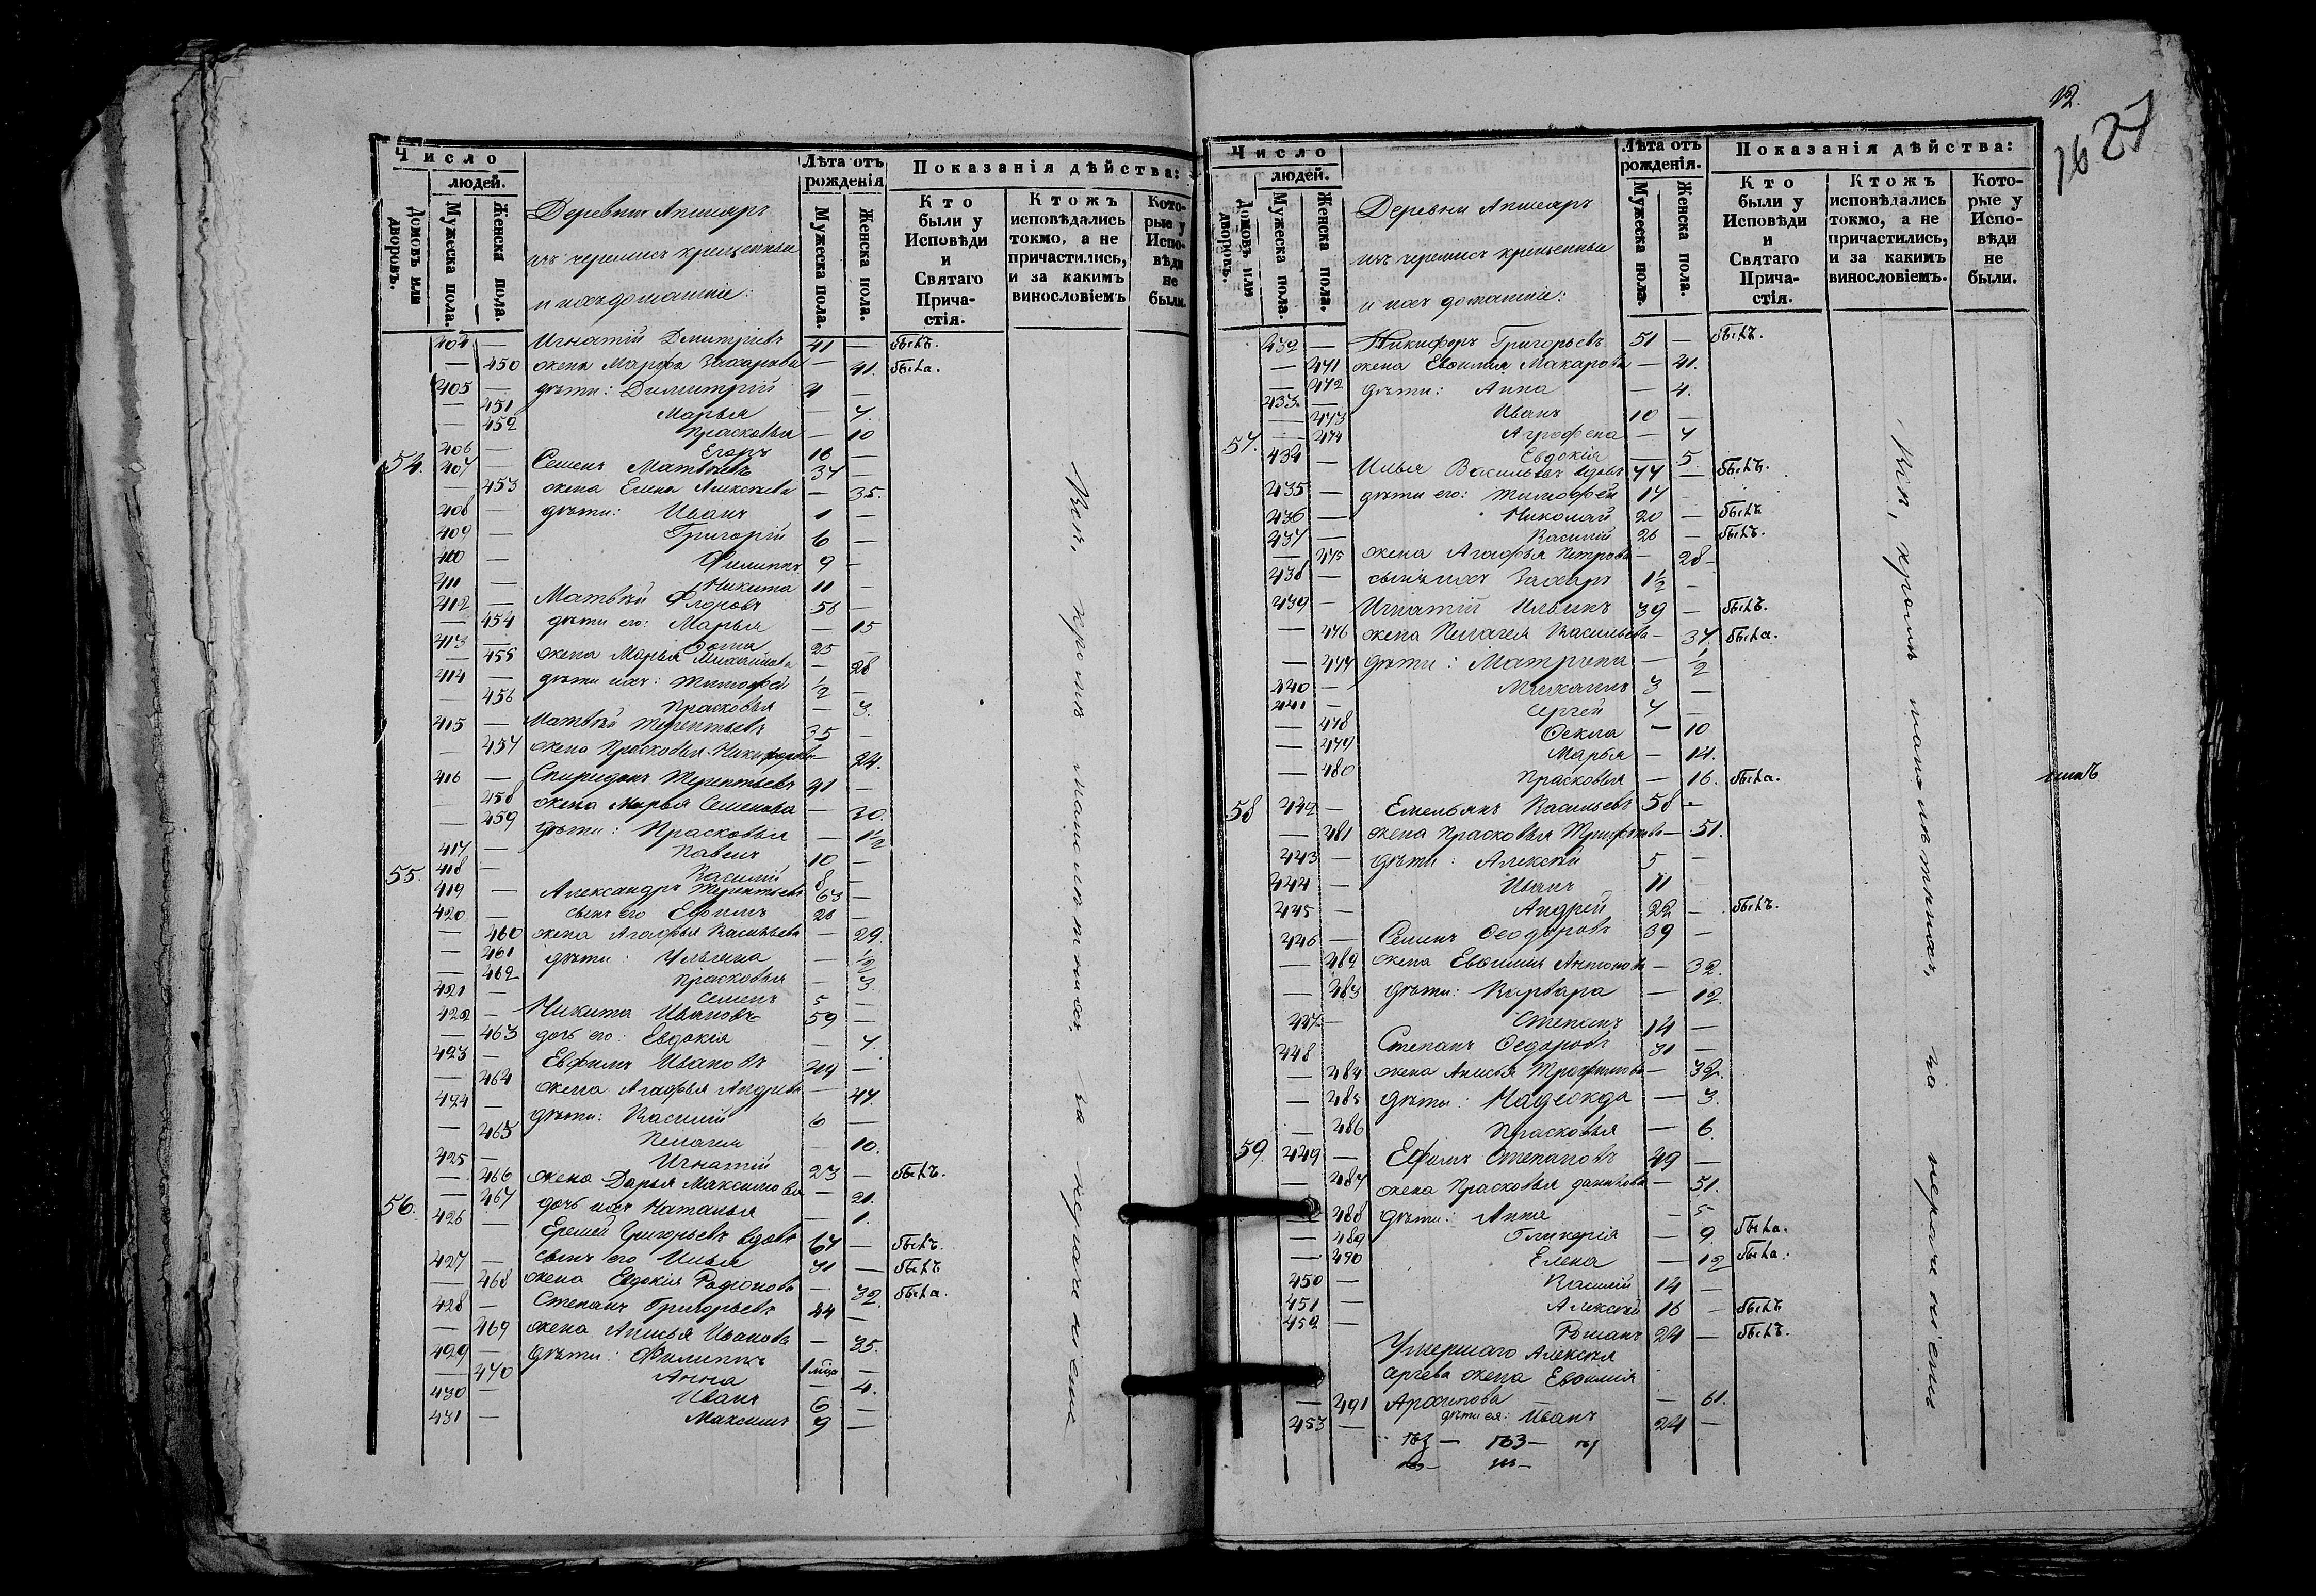 Число
людей.
Домовъ или дворовъ.
Мужеска пола.
Женска пола.
Деревни Апшеръ
изъ черемисъ крещенные
и ихъ домашніе:
Лѣта отъ рожденія
Мужеска пола.
Женска пола.
Показанія дѣйства:
Кто были у Исповѣди и Святаго Прича- стія.
Ктожъ исповѣдались токмо, а не причастились, и за какимъ винословіемъ
Кото- рые у Испо- вѣди не были.
— Игнатій Димитріевъ 41 — былъ.
— 450 жена Марфа Захарова — 41. была.
405 — дѣти: Димитрій 4 —
— 451 Марья — 7.
— 452 Прасковья — 10
406 — Егоръ 16 —
54. 407 — Семенъ Матвѣевъ 37 —
— 453 жена Елена Алексѣева — 35.
408 — дѣти: Иванъ 1 —
409 — Григорій 6 —
Филиппъ 9 —
411 — Никита 11 —
412 — Матвѣй Флоровъ 56 —
— 454 дѣти его: Марья — 15
413 — Ѳома 25 —
— 455 жена Марья Михайлова — 28
414 — дѣти ихъ: Тимофей ½ —
— 456 Прасковья — 3.
415 — Матвѣй Терентьевъ 35 —
— 457 жена Прасковья Никифорова — 24.
416 — Спиридонъ Терентьевъ 41 —
— 458 жена Марья Семенова —
— 459 дѣти: Прасковья — 1½
417 — Павелъ 10 —
418 — Василій 8 —
55. 419 — Александръ Терентьевъ 63 —
420 — сынъ его Ефимъ 28 —
— 460 жена Агафья Васильева — 29.
— 461 дѣти: Ульяна — ½
— 462 Прасковья — 3
421 — Семенъ 5 —
422 — Никита Ивановъ 59 —
— 463 дочь его: Евдокія — 7
423 — Евфимъ Ивановъ —
— 464 жена Агафья Андреева — 47.
424 — дѣти: Василій 6 —
— 465 Пелагея — 10.
425 — Игнатій 23 — былъ.
— 466 жена Дарья Максимова — 21.
— 467 дочь ихъ Наталья — 1.
56. 426 — Еремей Григорьевъ вдовъ 67 — былъ.
427 — сынъ его Илья 31 — былъ
— 468 жена Евдокія Родіонова — 32. была.
428 — Степанъ Григорьевъ 44 —
— 469 жена Анисья Иванова — 35.
429 — дѣти: Филиппъ 1 мѣс —
— 470 Анна — 4.
430 — Иванъ 6 —
431 — Максимъ 9 —
Всѣ, кромѣ малолѣтнихъ, за нераченіемъ
12.
1627
Число
людей.
Домовъ или дворовъ.
Мужеска пола.
Женска пола.
Деревни Апшеръ
изъ черемисъ крещенные
и ихъ домашніе:
Лѣта отъ рожденія.
Мужеска пола.
Женска пола.
Показанія дѣйства:
Кто были у Исповѣди и Святаго Прича- стія.
Ктожъ исповѣдались токмо, а не причастились, и за какимъ винословіемъ.
Кото- рые у Испо- вѣди не были.
432 — Никифоръ Григорьевъ 51 — былъ.
— 471 жена Евѳимія Макарова — 41.
— 472 дѣти: Анна — 4.
433 — Иванъ 10 —
— 473 Агрофена — 7
— 474 Евдокія — 5.
57. 434 — Илья Васильевъ вдовъ 77 — былъ.
435 — дѣти его: Тимофей 17 —
436 — Николай 20 — былъ
437 — Василій 26 — былъ.
— 475 жена Агафья Петрова — 28 —
438 — сынъ ихъ Захаръ 1½ —
439 — Игнатій Ильинъ 39 — былъ.
— 476 жена Пелагея Васильева — 37. была.
— 477 дѣти: Матрена — ½
440 — Михаилъ 3 —
441 — Сергей 7 —
— 478 Ѳекла — 10
— 479 Марья — 14.
— 480 Прасковья — 16. была.
58 442 — Емельянъ Васильевъ 58 —
— 481 жена Прасковья — 51.
443 — дѣти: Алексѣй 5 —
444 — Иванъ 11 —
445 — Андрей 22 — былъ.
446 — Семенъ Ѳеодоровъ 39 —
— 482 жена Евѳимія Антонова — 32.
— 483 дѣти: Варвара — 12.
447 — Степанъ 14 —
448 Степанъ Ѳедоровъ 31 —
— 484 жена Анисья Трофимова — 32.
— 485 дѣти: Надежда — 3.
— 486 Прасковья — 6.
59. 449 — Ефимъ Степановъ 49 —
— 487 жена Прасковья Данилова — 51.
— 488 дѣти: Анна — 5
— 489 Гликерія — 9. была.
— 490 Елена — 12 была.
450 — Василій 14 —
451 — Алексѣй 16 — былъ
452 — Романъ 24 — былъ.
Умершаго Алексѣя
жена Евѳимія
— 491 Архипова — 61.
453 — дѣти ея: Иванъ 24 —
Всѣ, кромѣ малолѣтнихъ, за нераченіемъ